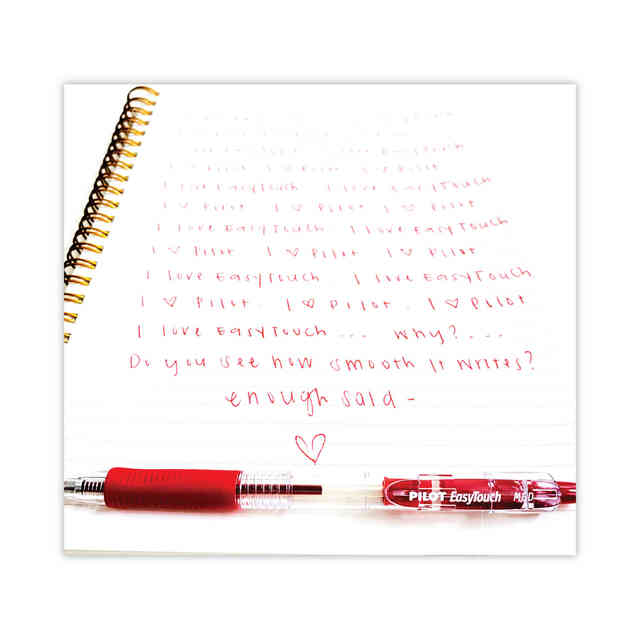 EasyTouch
I ♡ Pilot I ♡ Pilot I ♡ Pilot
I love EasyTouch I love EasyTouch
I ♡ Pilot I ♡ Pilot I ♡ Pilot
I love EasyTouch I love EasyTouch
I ♡ Pilot I ♡ Pilot I ♡ Pilot
I love EasyTouch I love EasyTouch
I ♡ Pilot. I ♡ Pilot. I ♡ Pilot
I love EasyTouch... Why?...
Do you see how smooth it writes?
enough said -
♡
PILOT EasyTouch MED